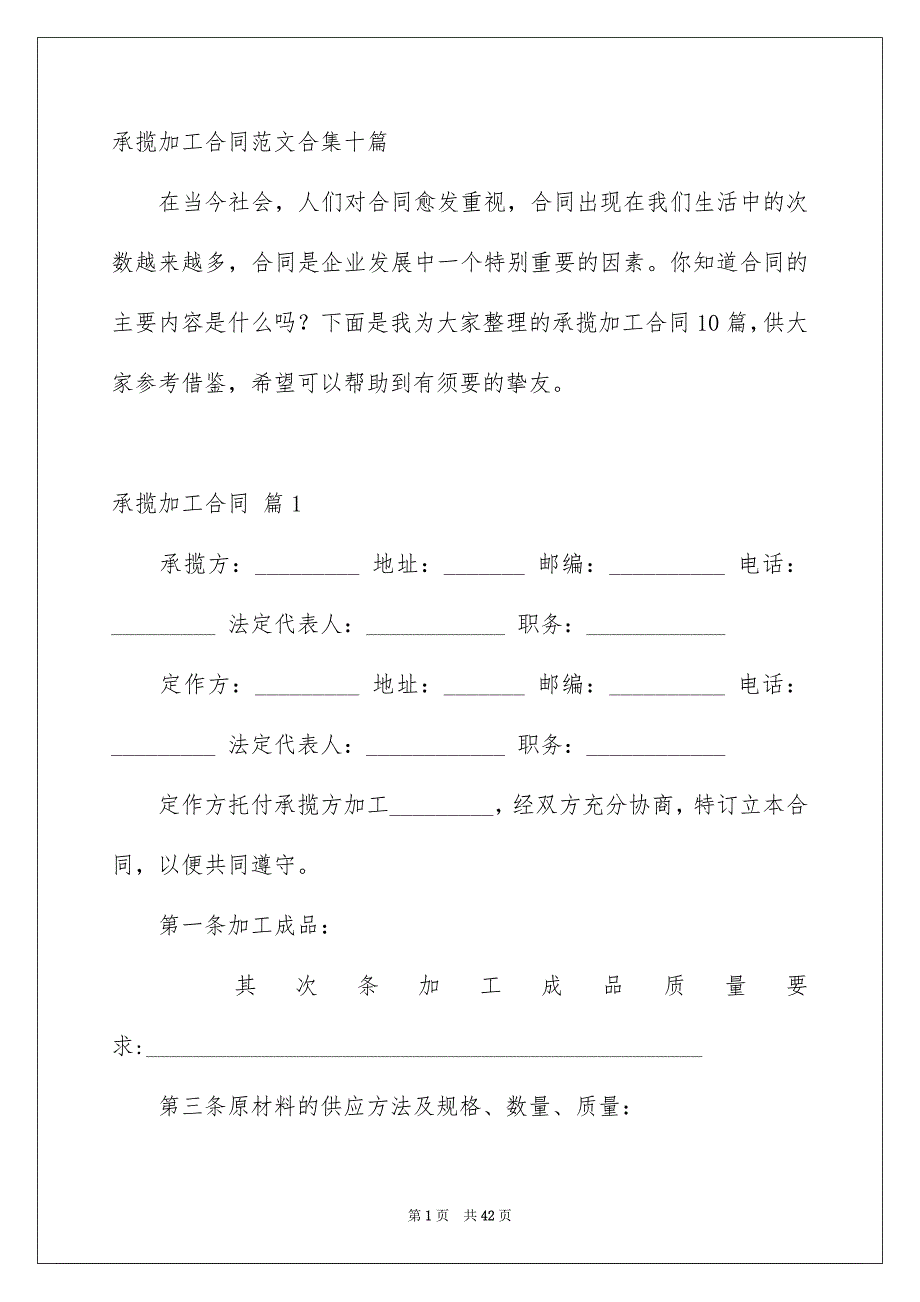 承揽加工合同范文合集十篇
在当今社会，人们对合同愈发重视，合同出现在我们生活中的次
数越来越多，合同是企业发展中一个特别重要的因素。你知道合同的
主要内容是什么吗？下面是我为大家整理的承揽加工合同10篇，供大
家参考借鉴，希望可以帮助到有须要的挚友。
承揽加工合同 篇1
承揽方：_________ 地址：_______ 邮编：__________ 电话：
_________ 法定代表人：____________ 职务：____________
定作方：_________ 地址：_______ 邮编：__________ 电话：
_________ 法定代表人：____________ 职务：____________
定作方托付承揽方加工_________，经双方充分协商，特订立本合
同，以便共同遵守。
第一条加工成品：
其次条加工成品质量要
求:________________________________________________
第三条原材料的供应方法及规格、数量、质量：
第1页 共42页